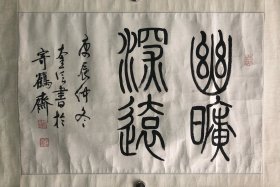 幽曠
深遠
庚辰仲冬
奎信書於
寄鶴齋